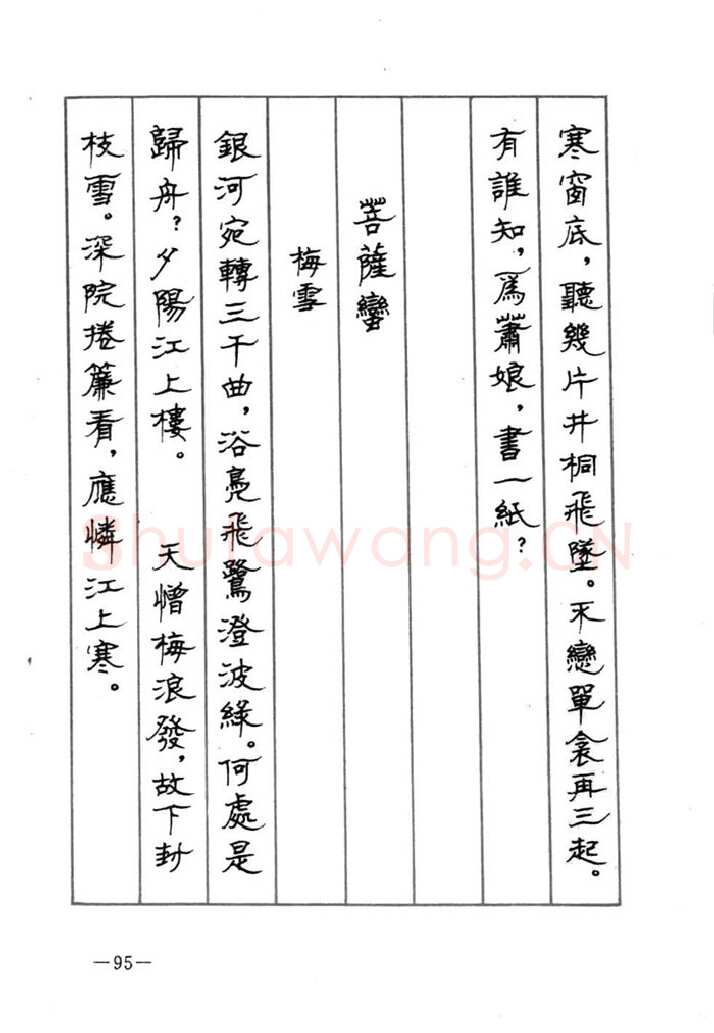 寒窗底，聽幾片井桐飛墜。不戀單衾再三起。
有誰知，爲蕭娘，書一紙？
菩薩蠻
梅雪
銀河宛轉三千曲，浴鳧飛鷺澄波綠。何處是
歸舟？夕陽江上樓。　天憎梅浪發，故下封
枝雪。深院捲簾看，應憐江上寒。
Shufawang.CN
—95—